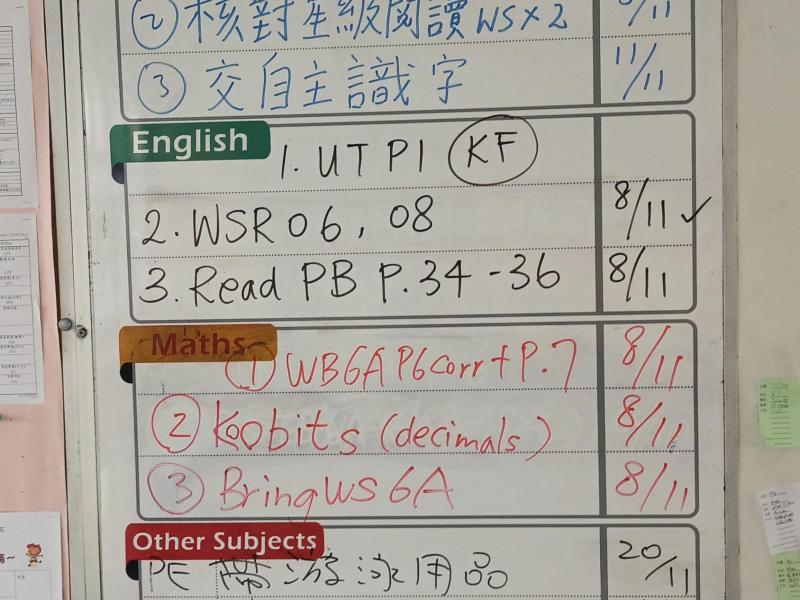 ② 核對星級閱讀 WS x 2 8/11
③ 交自主識字 11/11
English
1. UT P1 KF
2. WSR 06, 08 8/11 ✓
3. Read PB P.34 -36 8/11
Maths
① WB6A P6 corr + P.7 8/11
② Koobits (decimals) 8/11
③ Bring WS 6A 8/11
Other Subjects
PE 帶游泳用品 20/11